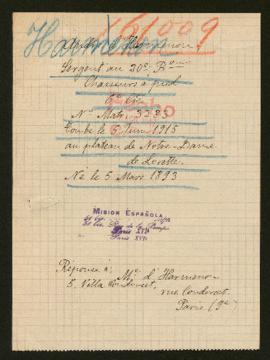 161009
d'Harmenon
Sergent au 20e Bon
Chasseurs à pied
6e Cie
No Mat. 3285
Tombé le 6 Juin 1915
au plateau de Notre-Dame
de Lorette.
Né le 5 Mars 1893
MISION ESPAÑOLA
Paris XVIe
Réponse à Me d'Harmenon
5, Villa Condorcet, rue Condorcet
Paris (9e)